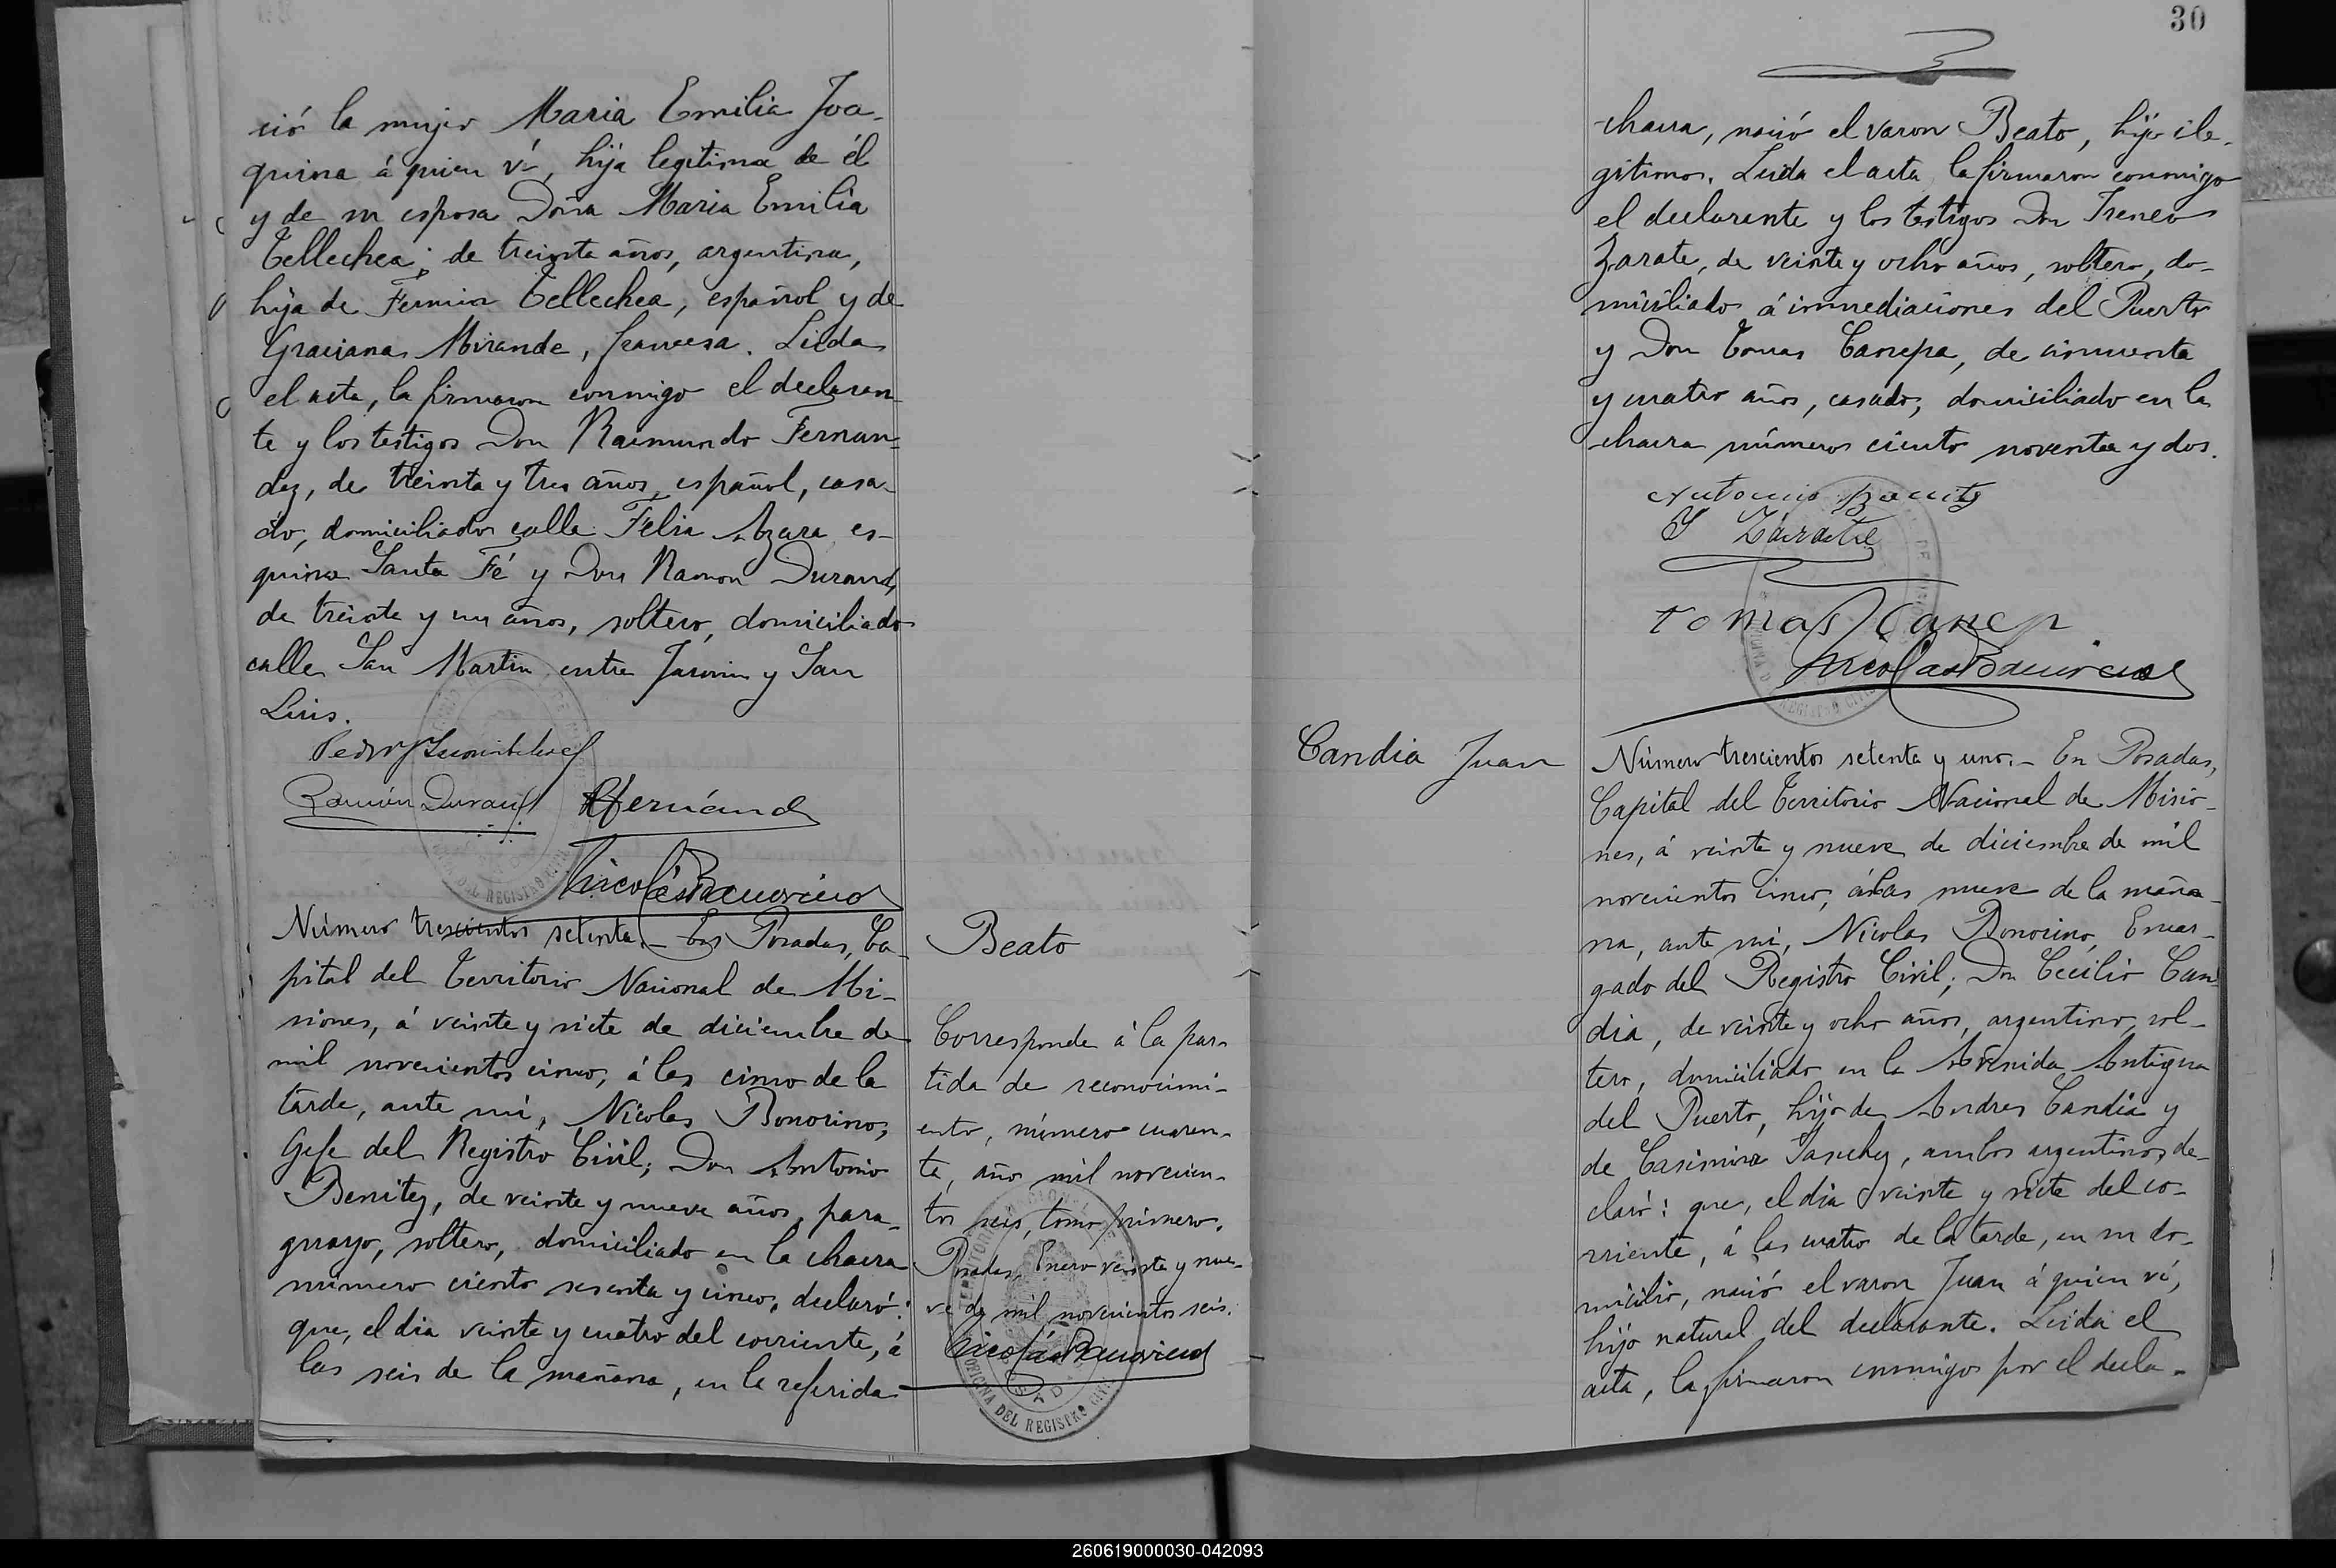 ció la mujer Maria Emilia Joa-
quina á quien ví, hija legitima de él
y de su esposa Doña Maria Emilia
Tellechea; de treinta años, argentina,
hija de Fermin Tellechea, español y de
Graciana Mirande, francesa. Leida
el acta, la firmaron conmigo el declaran-
te y los testigos Don Raimundo Fernan-
dez, de treinta y tres años, español, casa-
do, domiciliado calle Felix Azara es-
quina Santa Fé y Don Ramon Durand,
de treinta y un años, soltero, domiciliado
calle San Martin entre Junin y San
Luis.
Ramón Durand
Nicolás Bonorino
Número trescientos setenta.- En Posadas, Ca-
pital del Territorio Nacional de Mi-
siones, á veinte y siete de diciembre de
mil novecientos cinco, á las cinco de la
tarde, ante mi, Nicolas Bonorino,
Gefe del Registro Civil; Don Antonio
Benitez, de veinte y nueve años, para-
guayo, soltero, domiciliado en la chacra
número ciento sesenta y cinco, declaró:
que, el dia veinte y cuatro del corriente, á
las seis de la mañana, en la referida
Beato
Corresponde á la par-
tida de reconocimi-
ento, número cuaren-
ta, año mil novecien-
tos seis, tomo primero.
Posadas, Enero veinte y nue-
ve de mil novecientos seis.
Nicolás Bonorino
OFICINA DEL REGISTRO CIVIL
30
chacra, nació el varon Beato, hijo ile-
gitimo. Leida el acta la firmaron conmigo
el declarante y los testigos Don Ireneo
Zarate, de veinte y ocho años, soltero, do-
miciliado á inmediaciones del Puerto
y Don Tomas Canepa, de cincuenta
y cuatro años, casado, domiciliado en la
chacra número ciento noventa y dos.
Antonio Benitez
I Zárate
Tomas Canepa
Nicolas Bonorino
Candia Juan
Número trescientos setenta y uno.- En Posadas,
Capital del Territorio Nacional de Misio-
nes, á veinte y nueve de diciembre de mil
novecientos cinco, á las nueve de la maña-
na, ante mi, Nicolas Bonorino, Encar-
gado del Registro Civil; Don Cecilio Can-
dia, de veinte y ocho años, argentino, sol-
tero, domiciliado en la Avenida Antigua
del Puerto, hijo de Andres Candia y
de Casimira Sanchez, ambos argentinos, de-
claró: que, el dia veinte y siete del co-
rriente, á las cuatro de la tarde, en su do-
micilio, nació el varon Juan á quien ví,
hijo natural del declarante. Leida el
acta, la firmaron conmigo por el decla-
260619000030-042093